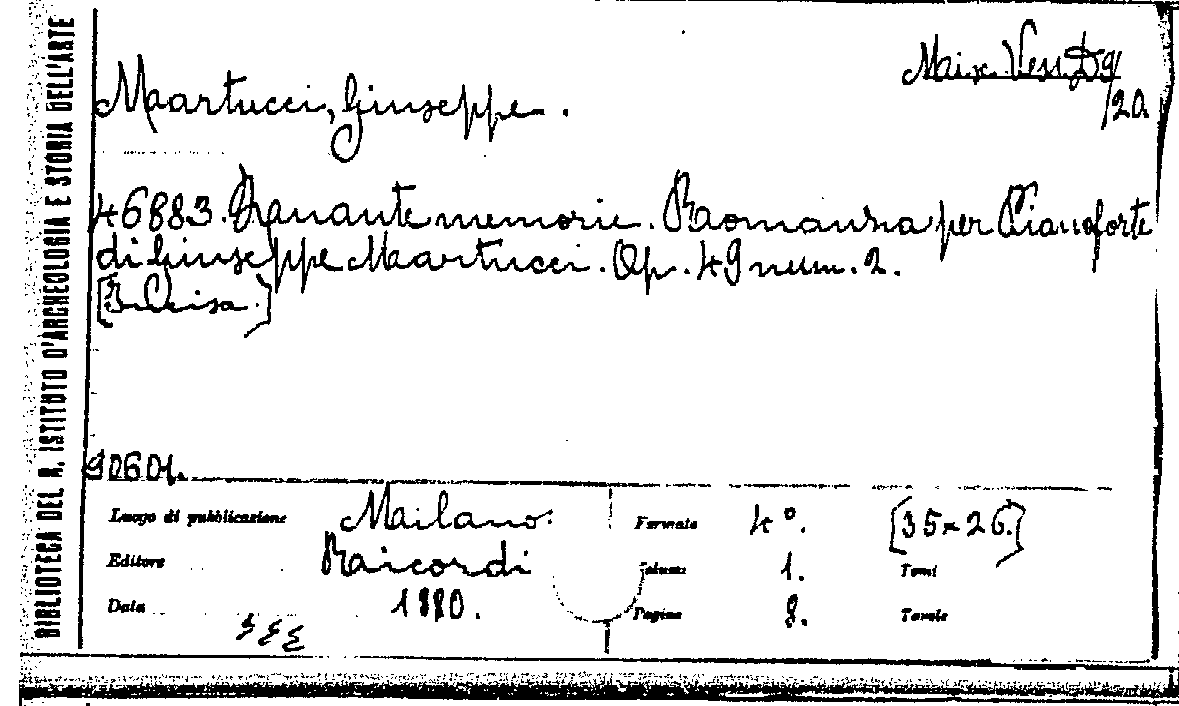 BIBLIOTECA DEL R. ISTITUTO D'ARCHEOLOGIA E STORIA DELL'ARTE
Misc. Vess. D 9/
20.
Martucci, Giuseppe.
46883. memorie. Romanza per Pianoforte
di Giuseppe Martucci. Op. 49 num. 2.
90601.
Luogo di pubblicazione Milano. Formato 4°. [35×26.]
Editore Ricordi Volume 1. Tomi
Data 1880. Pagine 8. Tavole